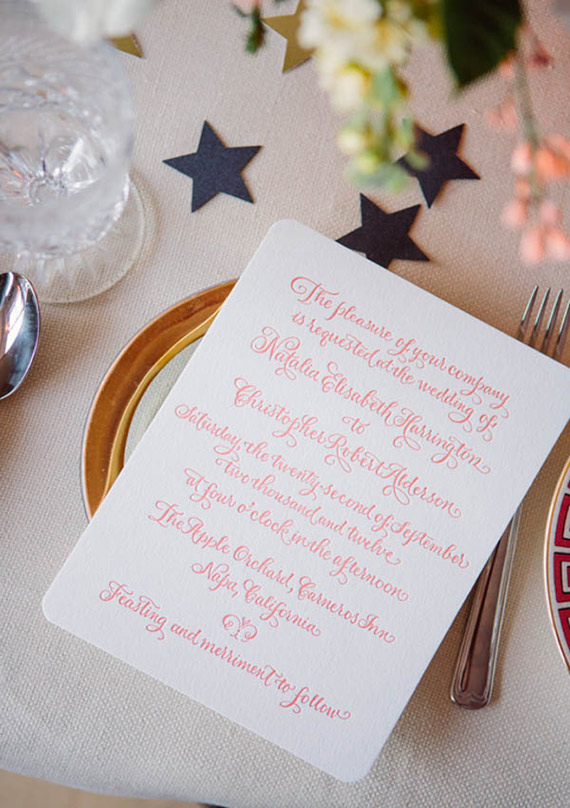 The pleasure of your company
is requested at the wedding of
Natalia Elisabeth Harrington
to
Christopher Robert Alderson
Saturday, the twenty-second of September
two thousand and twelve
at four o'clock in the afternoon
The Apple Orchard, Carneros Inn
Napa, California
Feasting and merriment to follow